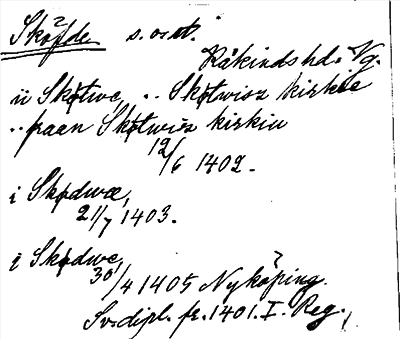 Sköfde s. o. st.
Kåkinds hd. Vg.
ii Skøtwe, .. Skøtwisz kirkie
.. fraan Skøtwisz kirkiu
12/6 1402.
i Skødwæ,
21/7 1403.
i Skødwe,
30/4 1405 Nyköping.
Sv. dipl. fr. 1401. I. Reg.